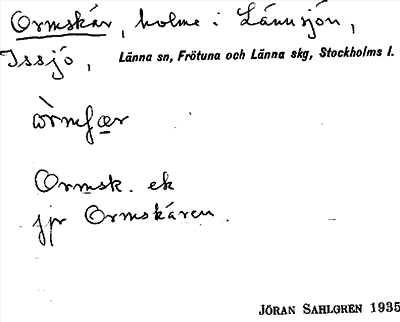 Ormskär, holme i Lännsjön,
Issjö, Länna sn, Frötuna och Länna skg, Stockholms l.
Ormsk. ek
jpr Ormskären.
JÖRAN SAHLGREN 1935